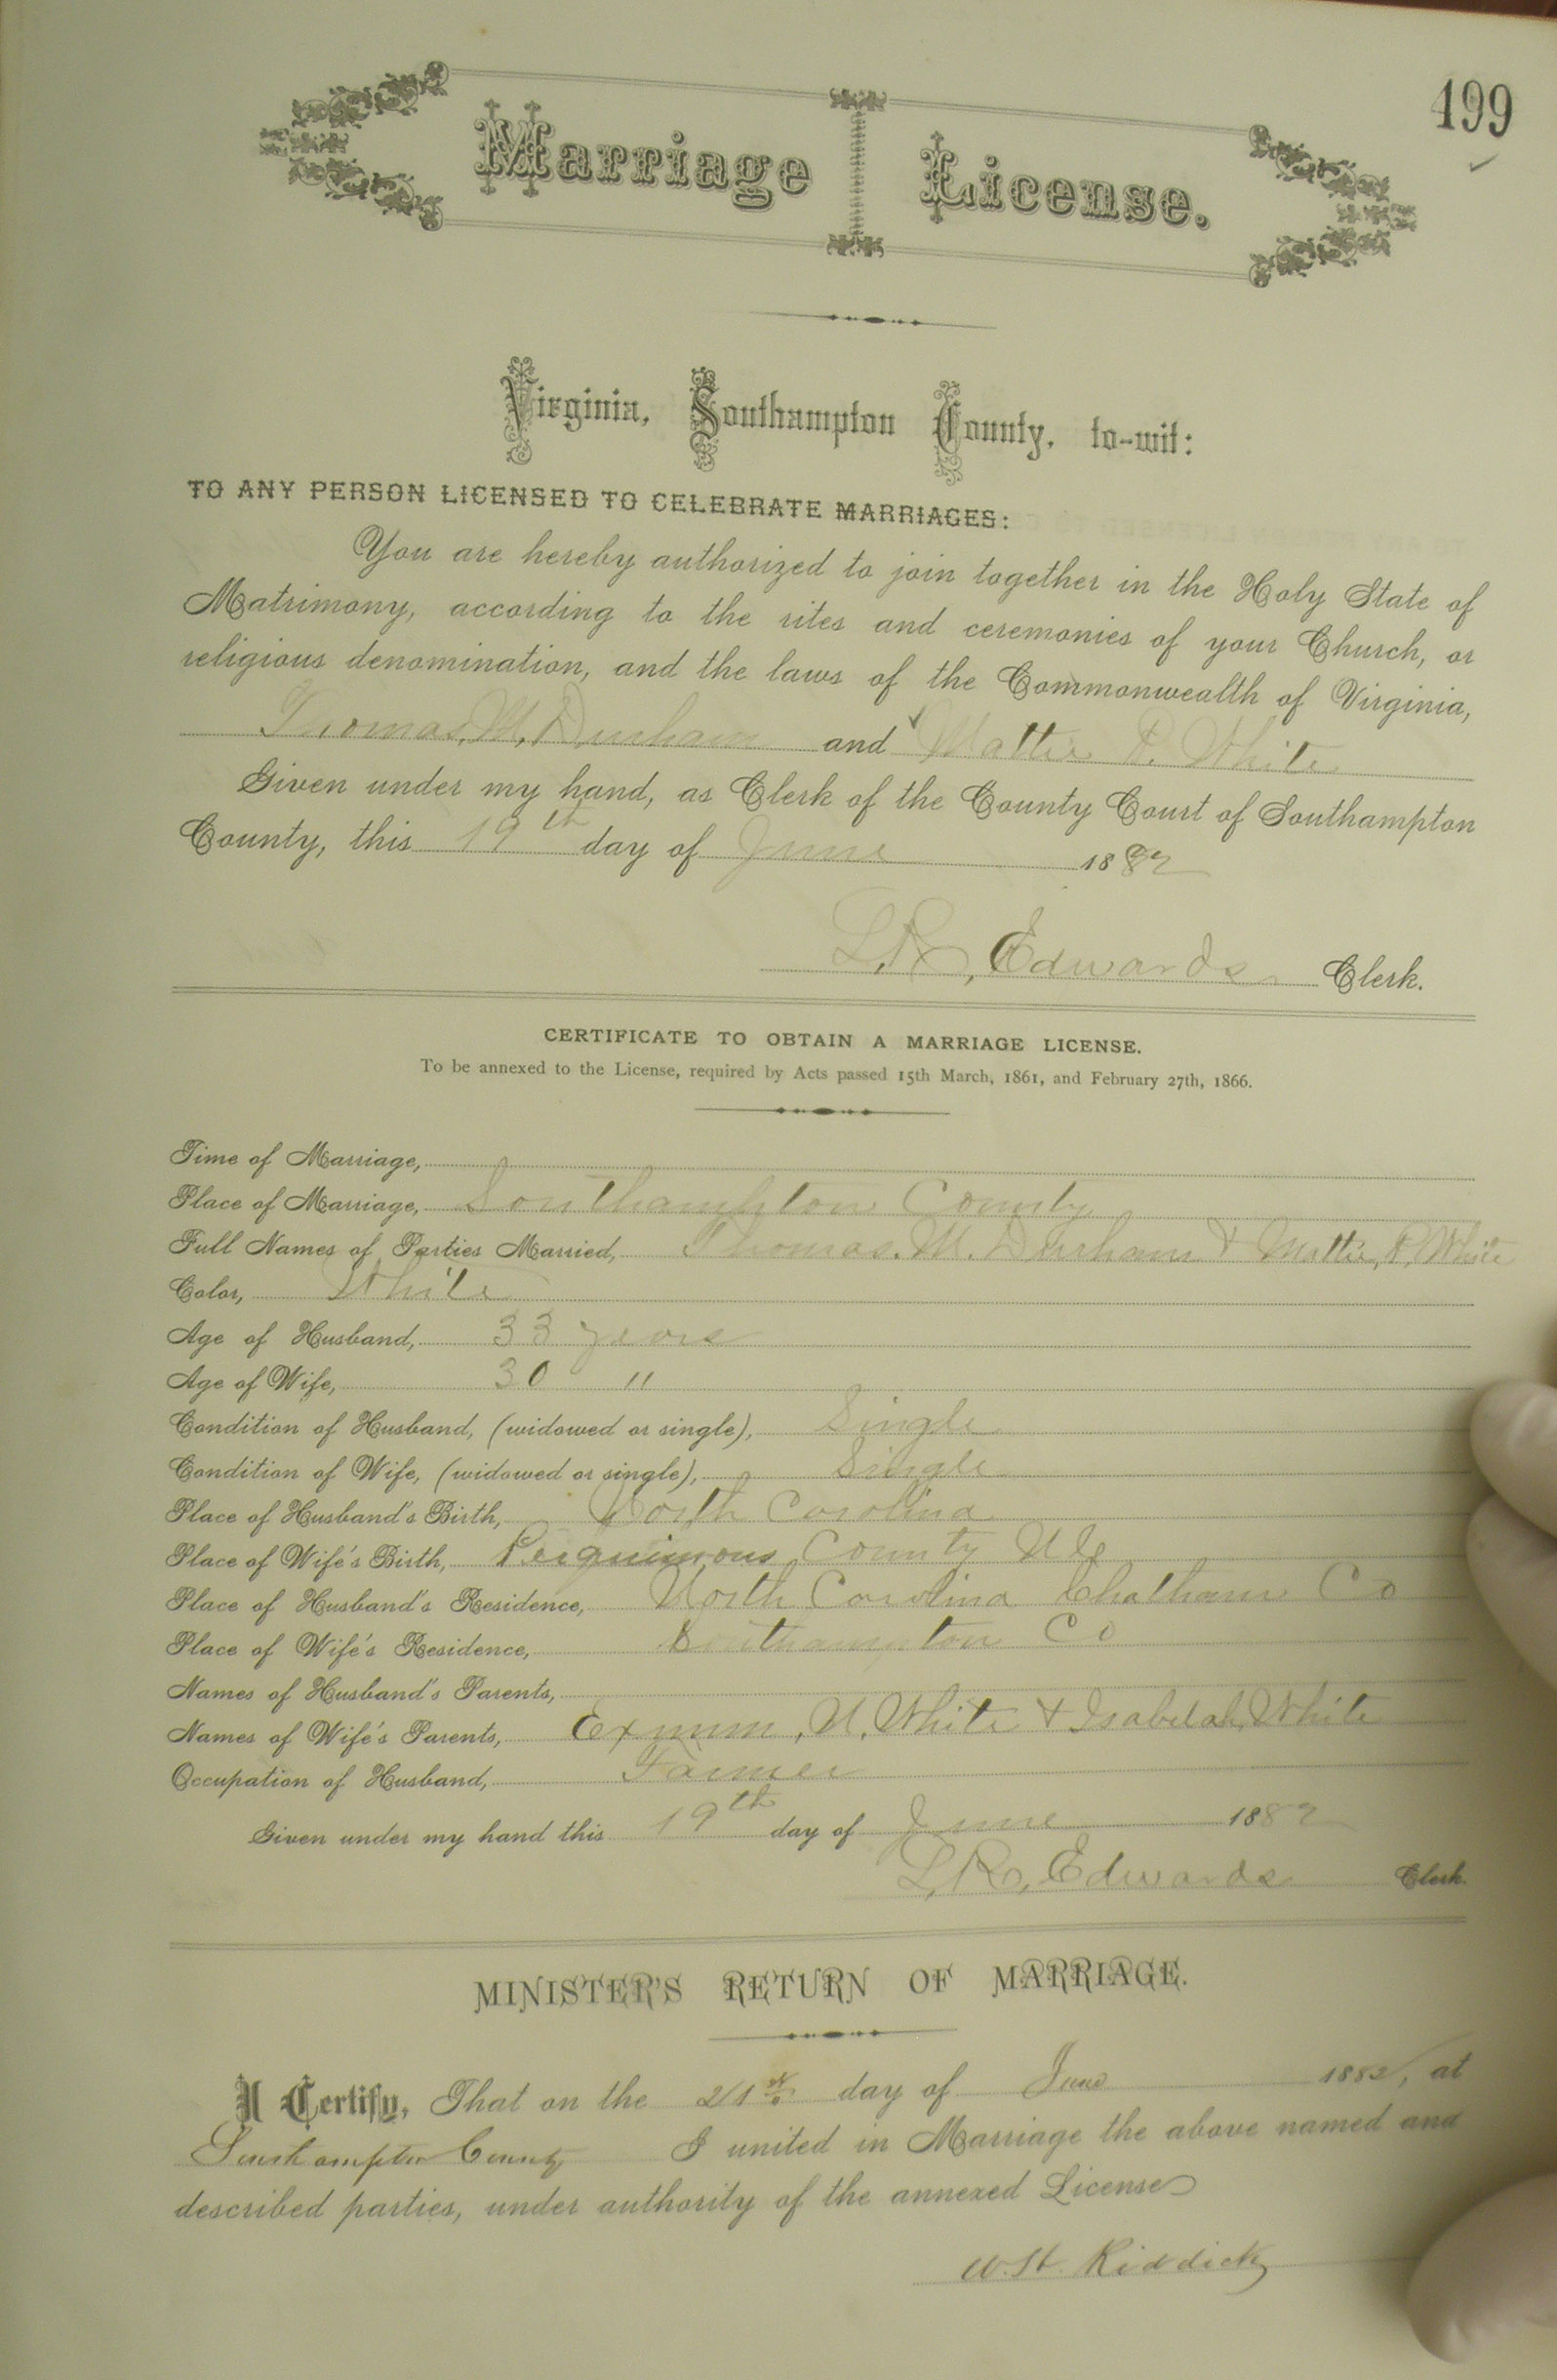 499
Marriage License.
Virginia, Southampton County, to-wit:
TO ANY PERSON LICENSED TO CELEBRATE MARRIAGES:
You are hereby authorized to join together in the Holy State of
Matrimony, according to the rites and ceremonies of your Church, or
religious denomination, and the laws of the Commonwealth of Virginia,
Thomas. M. Durham and Mattie P. White
Given under my hand, as Clerk of the County Court of Southampton
County, this 19th day of June 1882
L. R. Edwards Clerk.
CERTIFICATE TO OBTAIN A MARRIAGE LICENSE.
To be annexed to the License, required by Acts passed 15th March, 1861, and February 27th, 1866.
Time of Marriage,
Place of Marriage, Southampton County
Full Names of Parties Married, Thomas. M. Durham & Mattie, P. White
Color, White
Age of Husband, 33 years
Age of Wife, 30 "
Condition of Husband, (widowed or single), Single
Condition of Wife, (widowed or single), Single
Place of Husband's Birth, North Carolina
Place of Wife's Birth, Perquimous County N C
Place of Husband's Residence, North Carolina Chatham Co
Place of Wife's Residence, Southampton Co
Names of Husband's Parents,
Names of Wife's Parents, Exum, N. White & Isabelah White
Occupation of Husband, Farmer
Given under my hand this 19th day of June 1882
L. R. Edwards Clerk.
MINISTER'S RETURN OF MARRIAGE.
I Certify, That on the 21st day of June 1882, at
Southampton County I united in Marriage the above named and
described parties, under authority of the annexed License
W. H. Riddick